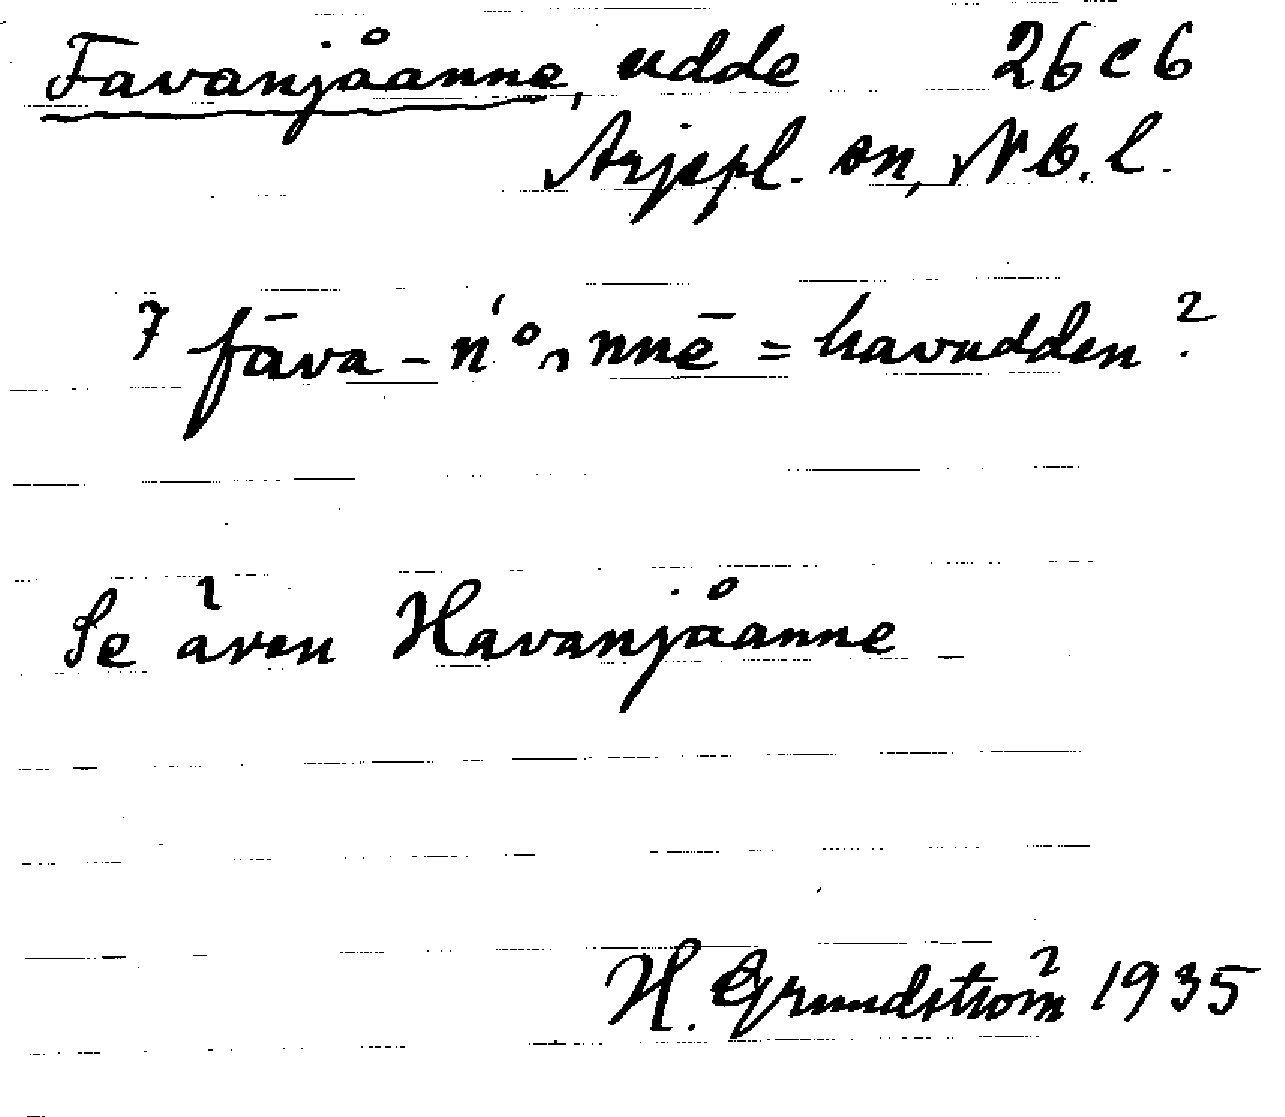 Favanjåanne, udde 26 c 6
Arjepl. sn, Nb. l.
7 fāva - ń°ₙnnē = havudden?
Se även Havanjåanne
H. Grundström 1935